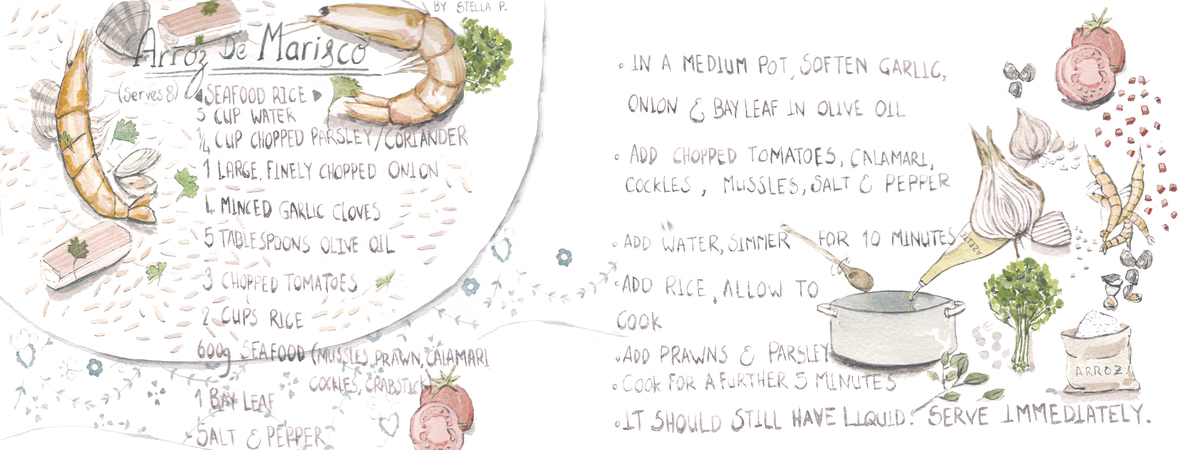 BY STELLA P.
Arroz De Marisco
(serves 8)
SEAFOOD RICE
5 CUP WATER
1/4 CUP CHOPPED PARSLEY/CORIANDER
1 LARGE, FINELY CHOPPED ONION
4 MINCED GARLIC CLOVES
5 TABLESPOONS OLIVE OIL
3 CHOPPED TOMATOES
2 CUPS RICE
600g SEAFOOD (MUSSLES, PRAWN, CALAMARI
COCKLES, CRABSTICK
1 BAY LEAF
SALT & PEPPER
◦ IN A MEDIUM POT, SOFTEN GARLIC,
ONION & BAY LEAF IN OLIVE OIL
◦ ADD CHOPPED TOMATOES, CALAMARI,
COCKLES, MUSSLES, SALT & PEPPER
◦ ADD WATER, SIMMER FOR 10 MINUTES
◦ ADD RICE, ALLOW TO
COOK
◦ ADD PRAWNS & PARSLEY
◦ COOK FOR A FURTHER 5 MINUTES
◦ IT SHOULD STILL HAVE LIQUID. SERVE IMMEDIATELY.
AZEITE
ARROZ